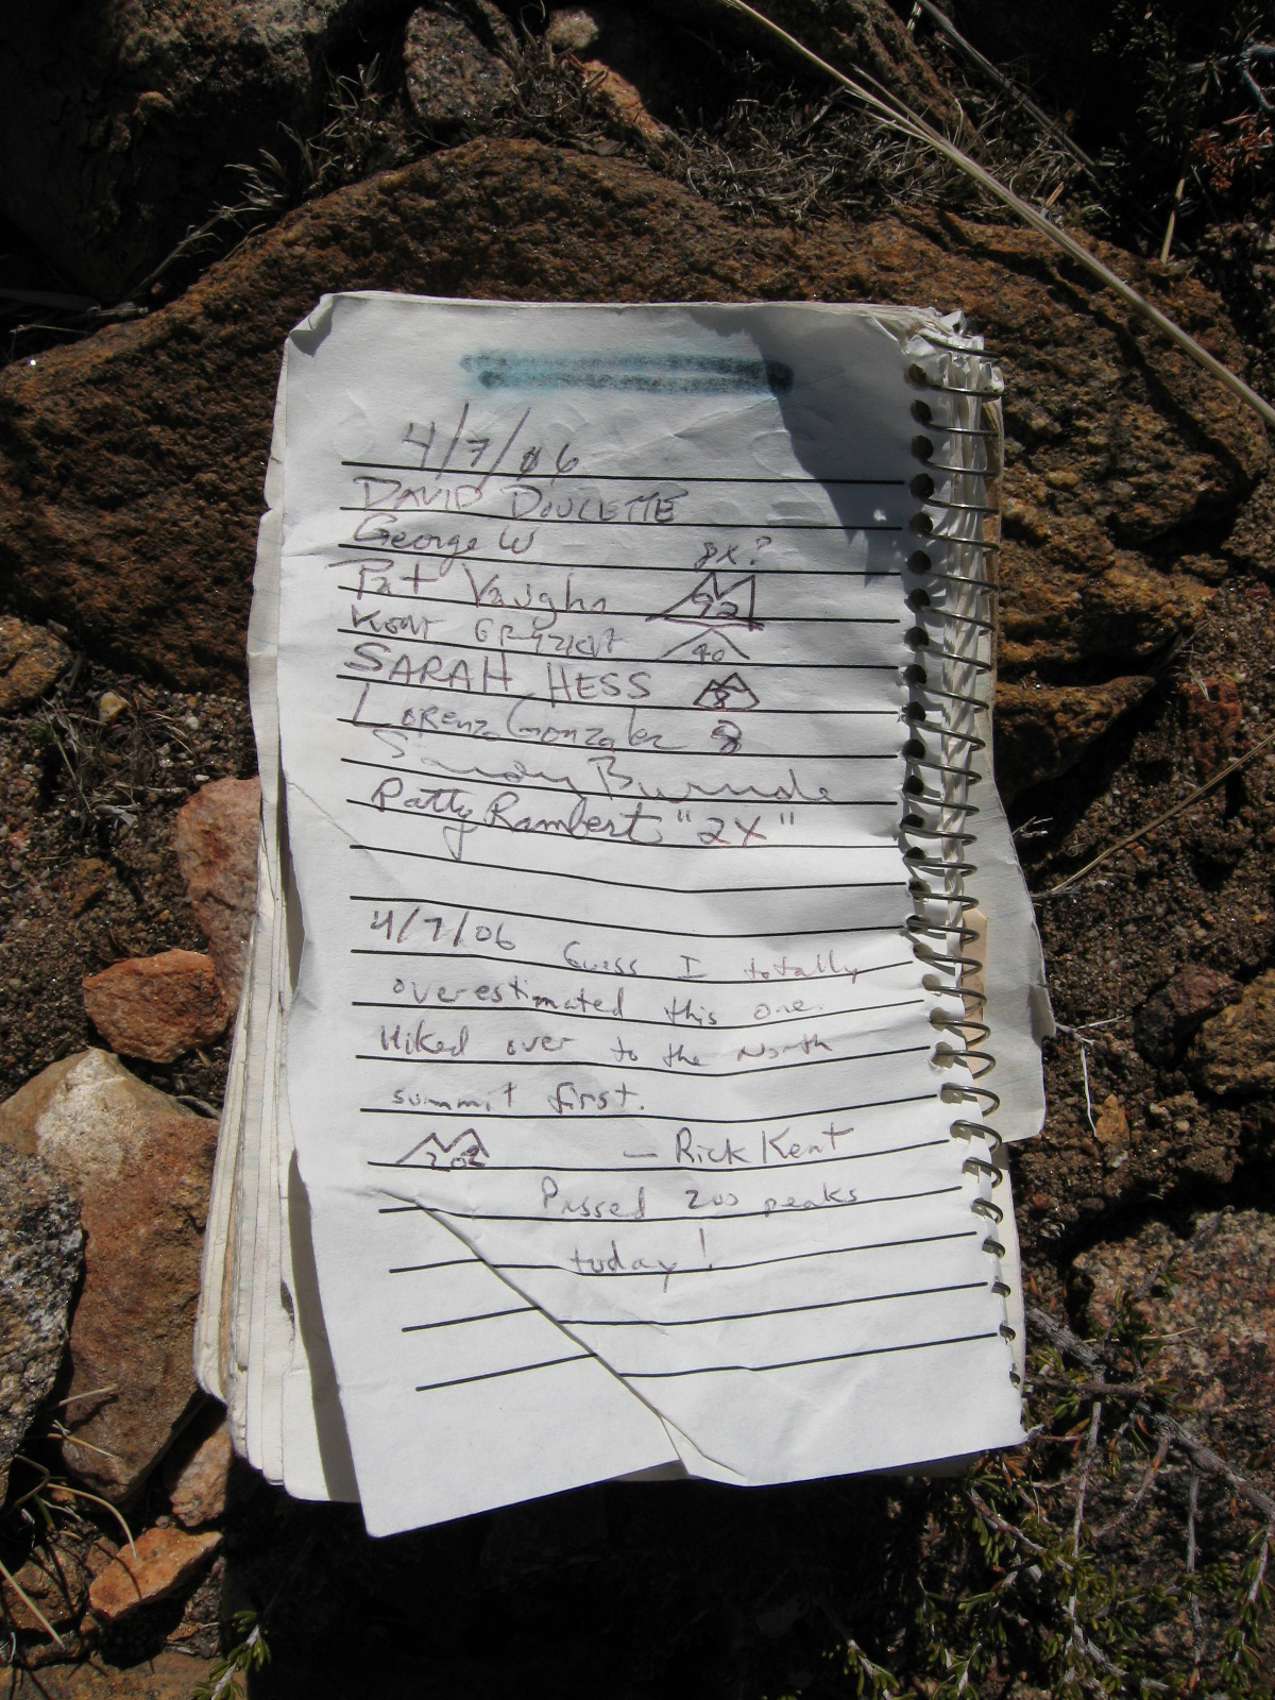 4/7/06
DAVID DOUCETTE
George W 8x?
Pat Vaughn 92
Kent 40
SARAH HESS 8
Lorenzo Gonzalez 8
Sandy
Patty Rambert "2X"
4/7/06 Guess I totally
overestimated this one.
Hiked over to the North
summit first.
202 — Rick Kent
Passed 200 peaks
today!